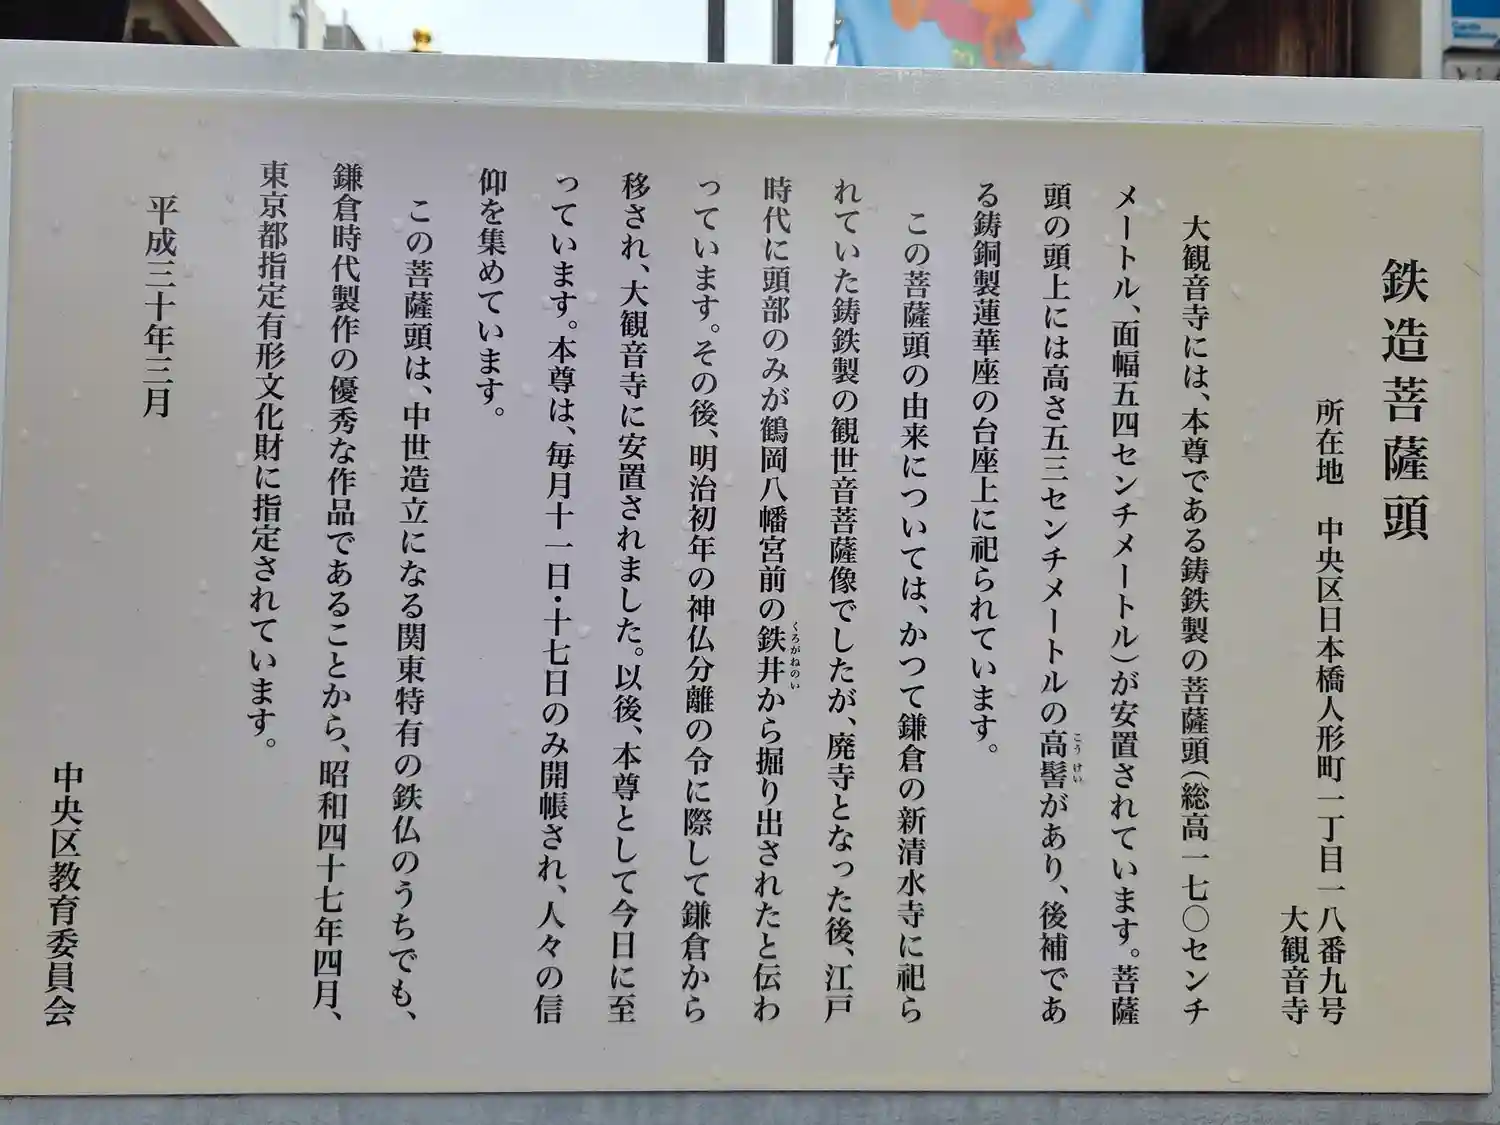 鉄造菩薩頭
所在地　中央区日本橋人形町一丁目一八番九号
大観音寺
大観音寺には、本尊である鋳鉄製の菩薩頭(総高一七〇センチ
メートル、面幅五四センチメートル)が安置されています。菩薩
頭の頭上には高さ五三センチメートルの高髻があり、後補であ
こうけい
る鋳銅製蓮華座の台座上に祀られています。
この菩薩頭の由来については、かつて鎌倉の新清水寺に祀ら
れていた鋳鉄製の観世音菩薩像でしたが、廃寺となった後、江戸
時代に頭部のみが鶴岡八幡宮前の鉄井から掘り出されたと伝わ
くろがねのい
っています。その後、明治初年の神仏分離の令に際して鎌倉から
移され、大観音寺に安置されました。以後、本尊として今日に至
っています。本尊は、毎月十一日・十七日のみ開帳され、人々の信
仰を集めています。
この菩薩頭は、中世造立になる関東特有の鉄仏のうちでも、
鎌倉時代製作の優秀な作品であることから、昭和四十七年四月、
東京都指定有形文化財に指定されています。
平成三十年三月
中央区教育委員会